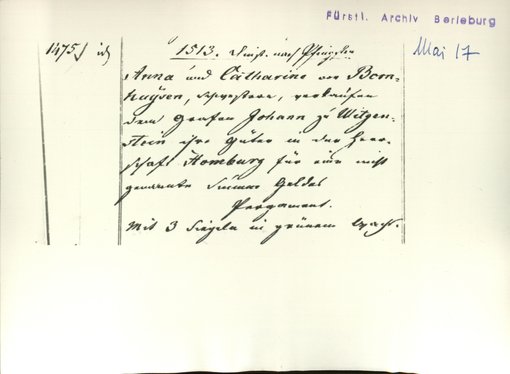 Fürstl. Archiv Berleburg
1475) id
1513. Dinst. nach Pfingsten
Mai 17
Anna und Catharine von Bom-
huysen, Schwestern, verkaufen
dem Grafen Johann zu Witgen-
stein ihre Güter in der Herr-
schaft Homburg für eine nicht
genannte Summe Geldes
Pergament.
Mit 3 Siegeln in grünem Wachs.